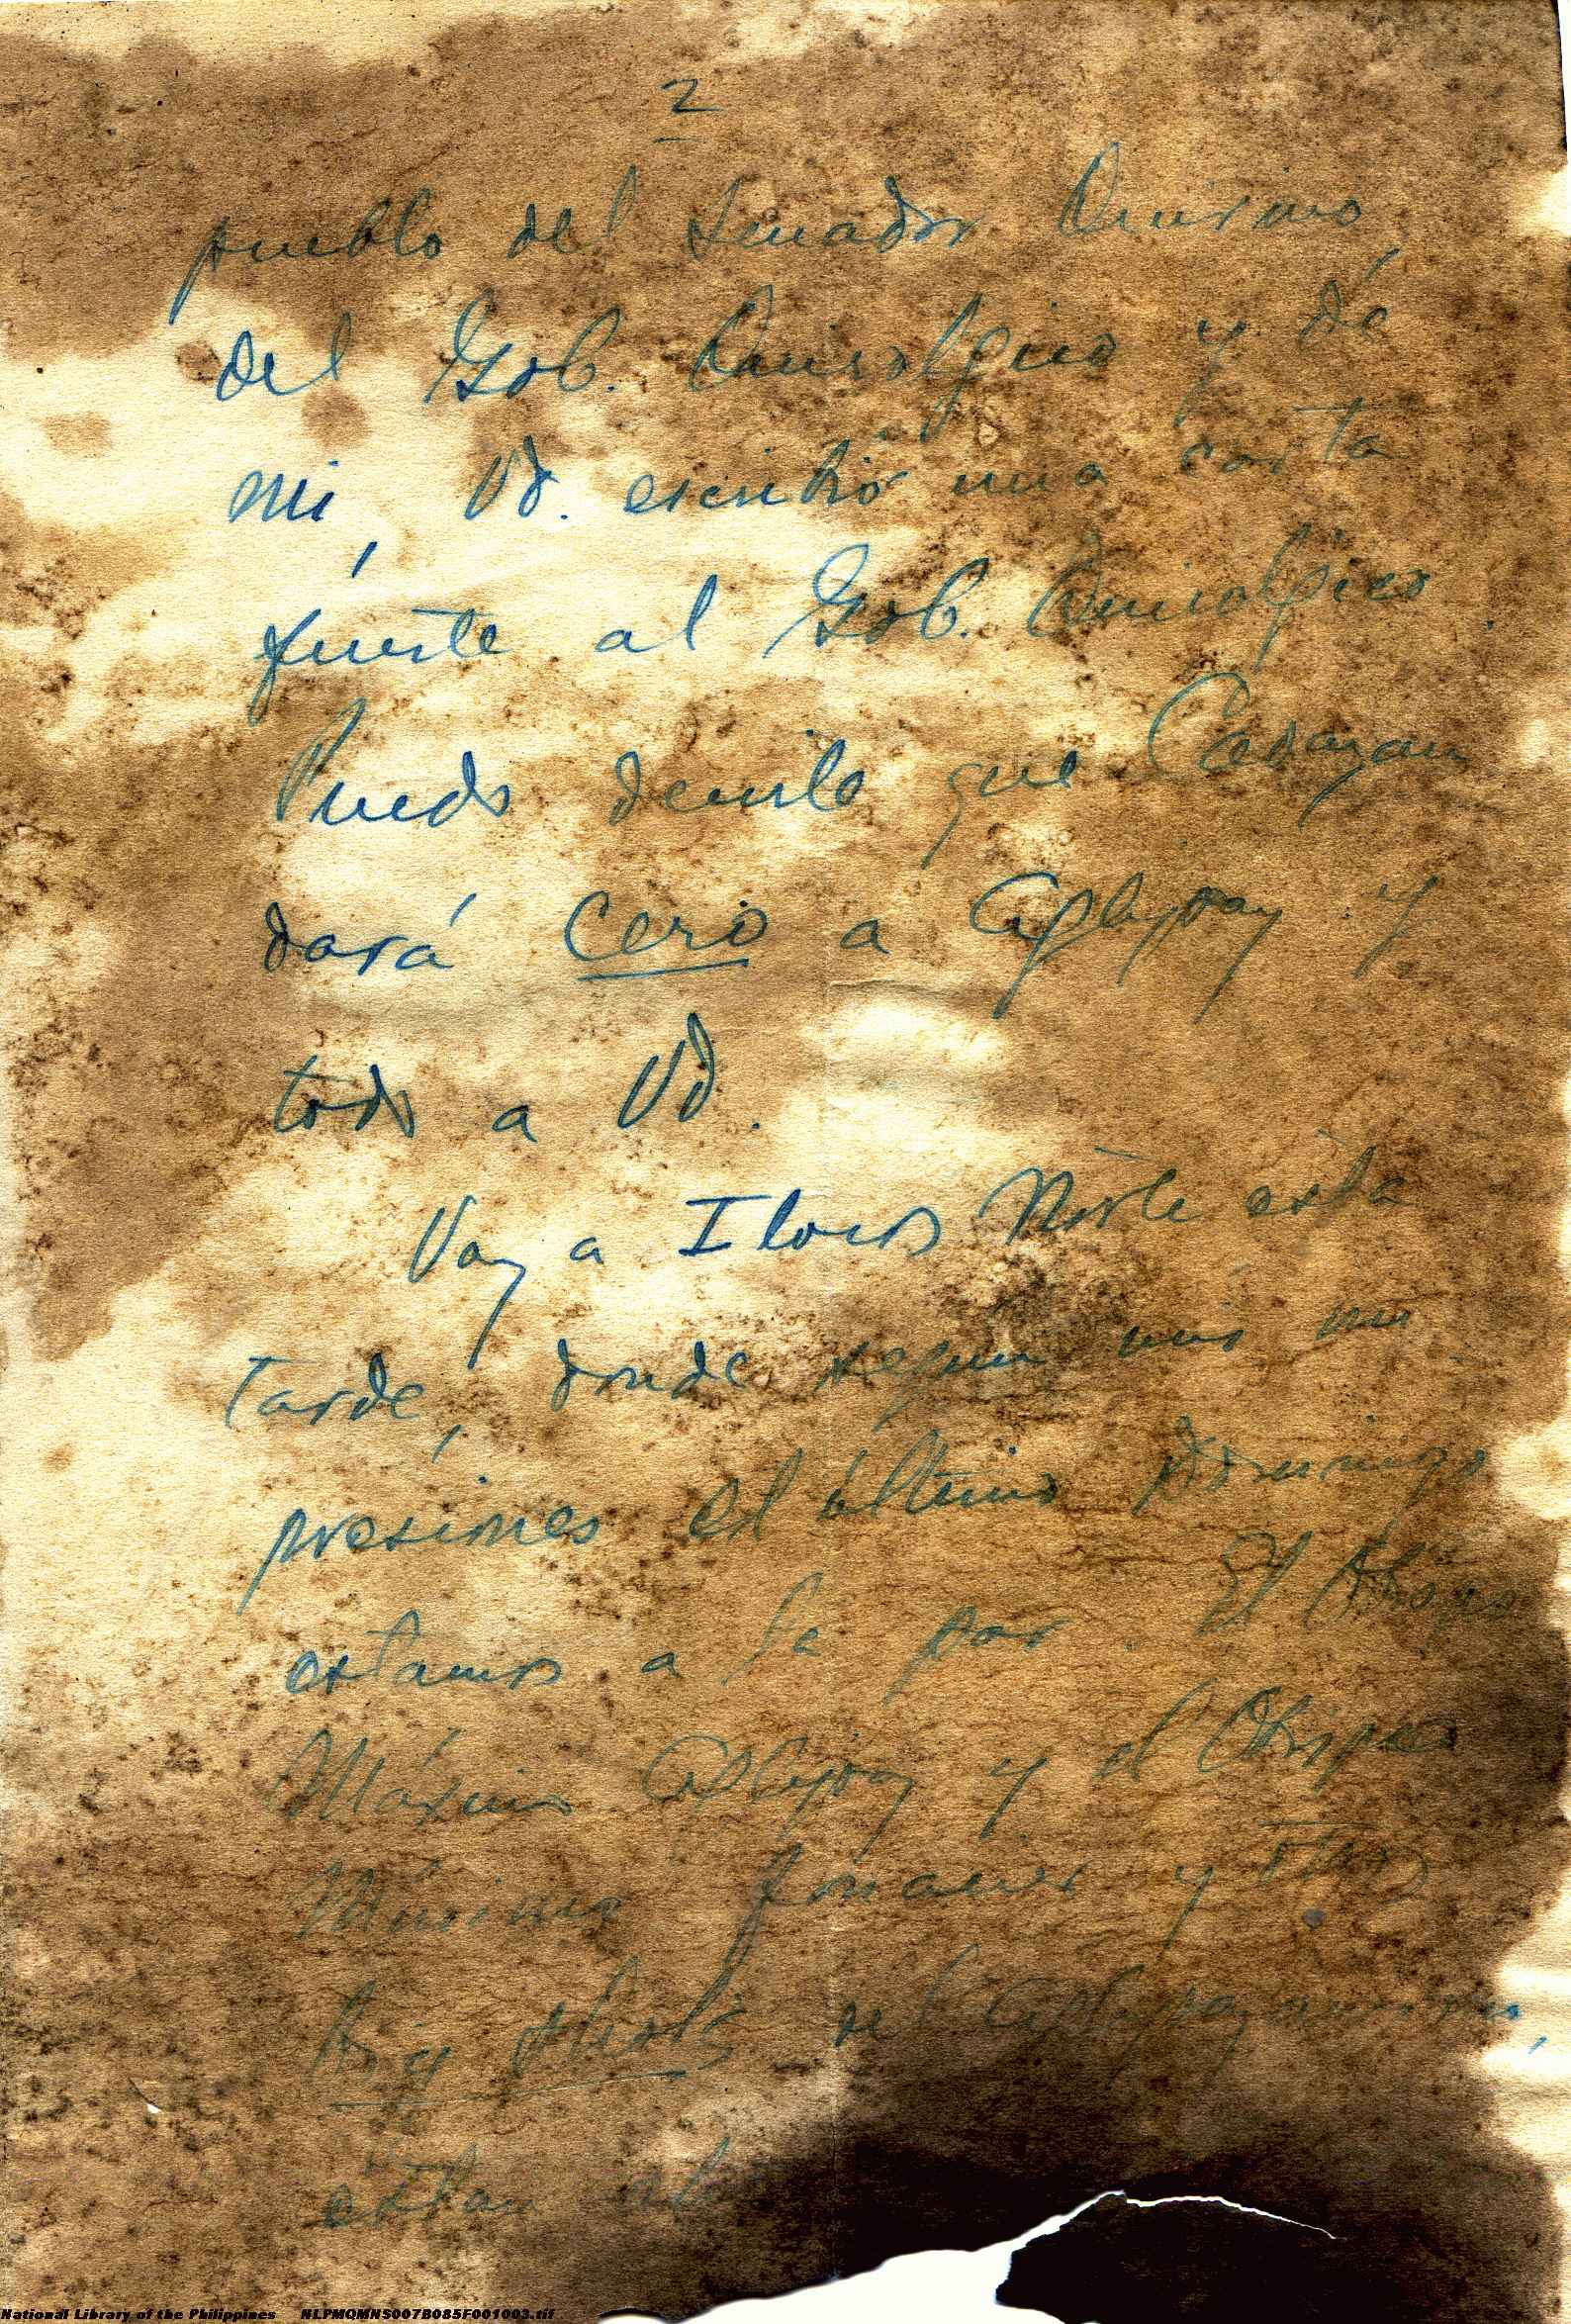 2
pueblo del Senador Quirino,
del Gob. Quirolgico y de
mi, Vd. escribió una carta
fuerte al Gob. Quirolgico.
Puedo decirle que Caoayan
dará cero a Aglipay y
todo a Vd.
Voy a Ilocos Norte esta
tarde, donde según mis im
presiones el último Domingo
estamos a la par. El Obispo
Máximo Aglipay y el Obispo
Fonacier y otros
big shots del Aglipayanismo,
están
National Library of the Philippines NLPMQMNS007B085F001003.tif